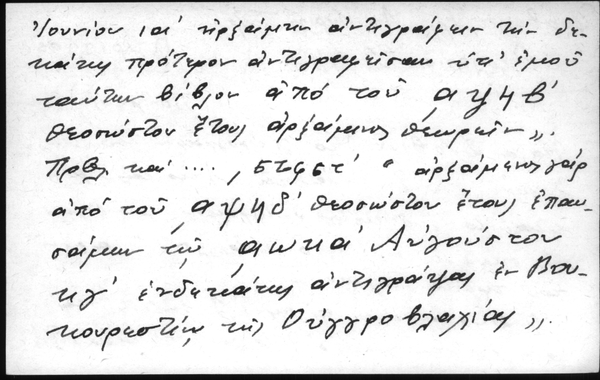 Ἰουνίου ια' ἠρξάμην ἀντιγράφειν τὴν δε-
κάτης πρότερον ἀντιγραφεῖσαν ὑπ' ἐμοῦ
ταύτην βίβλον ἀπό τοῦ αψηβ'
θεοσώστου ἔτους ἀρξάμενος θεωρεῖν„.
Πρβλ καί ...., " ἀρξάμενος γάρ
ἀπό τοῦ, αψηδ' θεοσώστου ἔτους ἐπαυ-
σάμην τῷ, αωκα' Αὐγούστου
κγ' ἑνδεκάτης ἀντιγράψας ἐν Βου-
κουρεστίῳ τῆς Οὐγγροβλαχίας„.